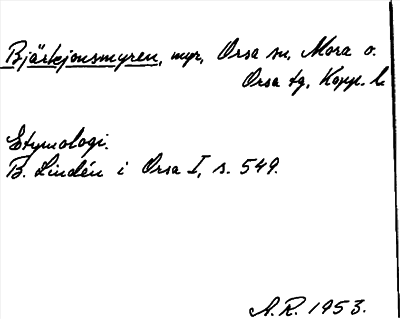 Bjärkjonsmyren, myr, Orsa sn, Mora o.
Orsa tg, Kopp. l.
Etymologi.
B. Lindén i Orsa I, s. 549.
A.R. 1953.